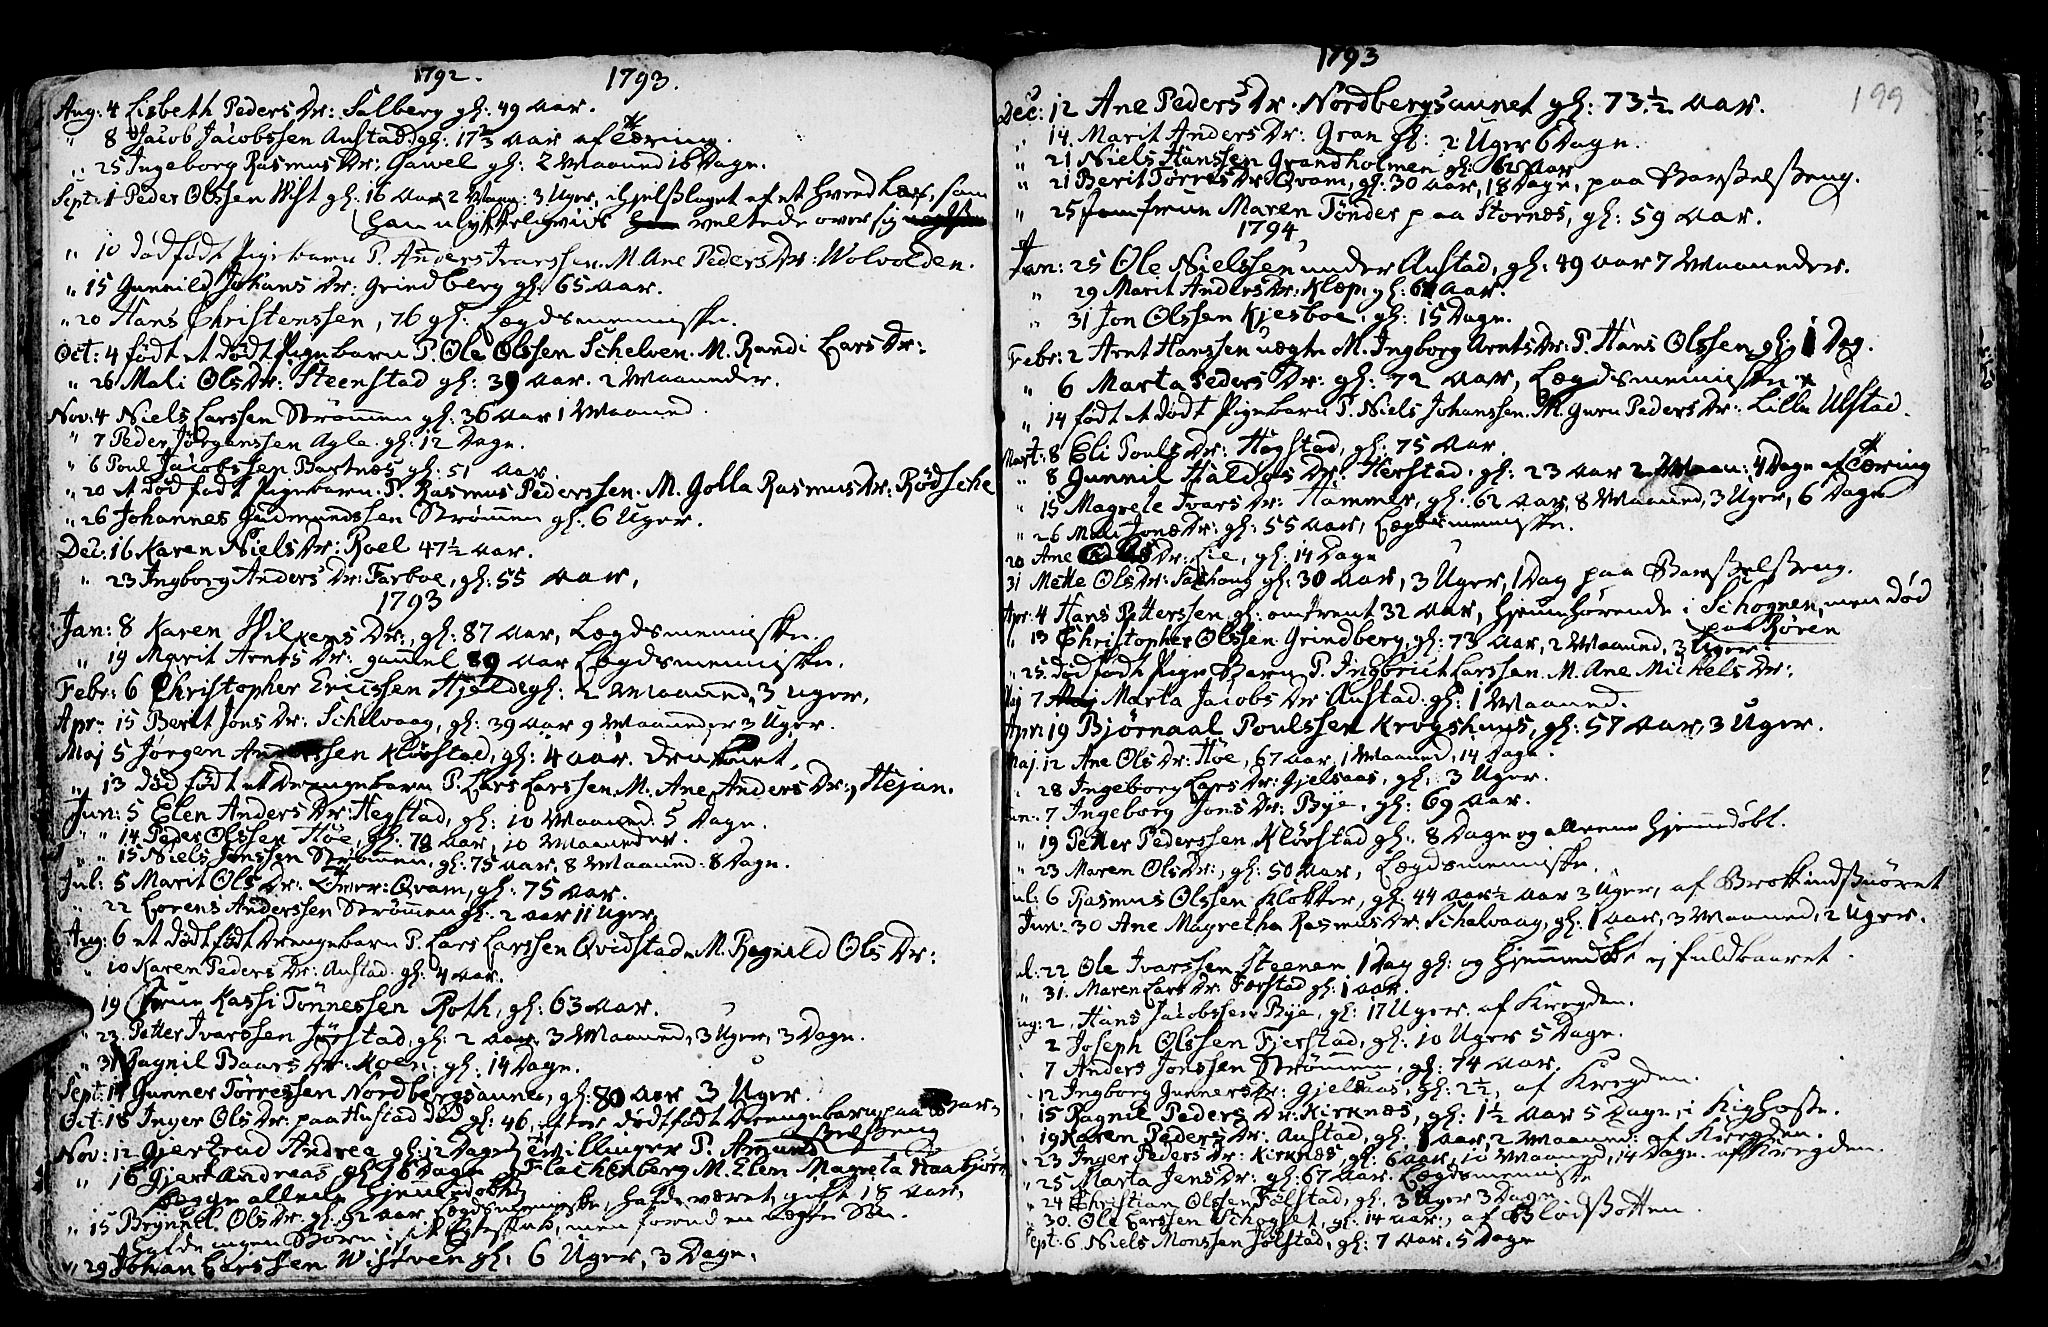 1792. 1793.
Aug: 4 Lisbeth Peders Dr: Salberg gl: 49 Aar.
" 8 Jacob Jacobssen Austad gl: 17 Aar af Tæring.
" 25 Ingeborg Rasmus Dr: Gawel gl: 2 Maaned 16 Dage.
Sept: 1 Peder Olssen Wist gl: 16 Aar 2 Maan: 3 Uger, ihjelslaget af et Hvend Læs, som
han ulykkeligviis veltede over sig
" 10 dødfødt Pigebarn P. Anders Ivarssen. M. Ane Peders Dr: Wolvolden.
" 15 Gunnild Johans Dr: Grindberg gl: 65 Aar.
" 20 Hans Christenssen, 76 gl: Lægdsmenniske.
Oct: 4 født et dødt Pigebarn P. Ole Olssen Schelven. M. Randi Lars Dr:
" 26 Mali Ols Dr: Steenstad gl: 39 Aar. 2 Maaneder.
Nov: 4 Niels Larssen Strømmen gl: 36 Aar 1 Maaned.
" 7 Peder Jørgenssen Agle gl: 12 Dage.
" 6 Poul Jacobssen Bartnæs gl: 51 Aar.
" 20 et død født Pigebarn. P. Rasmus Pederssen. M. Golla Rasmus Dr: Rødsche
" 26 Johannes Gudmundssen Strømmen gl: 6 Uger.
Dec: 16 Karen Niels Dr: Roel 47½ Aar.
" 23 Ingborg Anders Dr: Farboe, gl: 55 Aar,
1793
Jan: 8 Karen Wilkens Dr:, gl: 87 Aar, Lægdsmenniske.
" 19 Marit Arnts Dr: gammel 89 Aar Lægdsmenniske.
Febr: 6 Christopher Ericssen Hjelde gl: 2 Maaned, 3 Uger,
Apr: 15 Berit Jons Dr: Schelvaag, gl: 39 Aar 9 Maaneder 3 Uger.
Maj 5 Jørgen Anderssen Kløvstad, gl: 4 Aar. druknet.
" 13 død født et Drengebarn P. Lars Larssen M. Ane Anders Dr:, Hejan.
Jun: 5 Elen Anders Dr: Hegstad, gl: 10 Maaned 5 Dage.
" " 14 Peder Olssen Høe, gl: 78 Aar, 10 Maaneder.
" " 15 Niels Jonssen Strømmen, gl: 75 Aar. 8 Maaned. 8 Dage.
Jul: 5 Marit Ols Dr: Qvam, gl: 75 Aar.
" 22 Lorens Anderssen Strømmen gl: 2 Aar 11 Uger
Aug: 6 et dødt født Drengebarn P. Lars Larssen Qvidstad M. Ragnild Ols Dr:
" 10 Karen Peders Dr: Austad gl: 4 Aar.
" 19 Frue Kassi Tønnessen Roth, gl: 63 Aar.
" 23 Petter Ivarssen Jørstad, gl: 2 Aar 3 Maaned, 3 Uger, 3 Dage.
" 31 Ragnil Baars Dr: Moen: gl: 14 Dage.
Sept: 14 Gunner Tørressen Nordbergsaunet, gl: 80 Aar 3 Uger.
Oct: 18 Inger Ols Dr: paa Hustad død gl: 46, efter dødtfødt Drengebarn paa Bar-
selseng
Nov: 12 Gjertrud Andrea gl: 12 Dage } Tvillinger P. Amund
" 16 Gjert Andreas gl: 16 Dage } Flackenberg M. Elen Magreta Haabjørn
begge alleene hjemmedøbt
" 15 Bryngel Ols Dr: gl: 52 Aar, Lægdsmenniske, havde været gift 18 Aar,
havde ingen Børn i sit Egteskab, men forud en uægte Søn.
" 29 Johan Larssen Wistven gl: 6 Uger, 3 Dage.
1793
199
Dec: 12 Ane Peders Dr: Nordbergsaunet gl: 73½ Aar.
" 14. Marit Anders Dr: Gran gl: 2 Uger 6 Dage.
" 21 Niels Hanssen Grandholmen gl: 62 Aar
" 21 Berit Tørres Dr: Qvam, gl: 30 Aar, 18 Dage, paa Barselseng.
" 25 Jomfrue Maren Tønder paa Stornæs, gl: 59 Aar.
1794,
Jan: 25 Ole Nielssen under Austad, gl: 49 Aar 7 Maaneder.
" 29 Marit Anders Dr: Klæp: gl: 61 Aar.
" 31 Jon Olssen Kjesboe, gl: 15 Dage.
Febr: 2 Arnt Hanssen uægte M. Ingborg Arnts Dr: P. Hans Olssen gl: 1 Dag.
" 6 Marta Peders Dr: gl: 72 Aar, Lægdsmenniske
" 14 født et dødt Pigebarn P. Niels Johanssen. M. Guru Peders Dr: Lille Ulstad.
Mart: 8 Eli Pouls Dr: Høgstad, gl: 75 Aar.
" 8 Gunnil Haldos Dr: Herstad, gl: 23 Aar 2 Maan: 4 Dage af Tæring
" 15 Magrete Ivars Dr: Hammer, gl: 62 Aar, 8 Maaned, 3 Uger, 6 Dage
" 26 Mali Jonæ Dr: gl: 55 Aar, Lægdsmenniske.
20 Ane Dr: Lie, gl: 14 Dage
31 Mette Ols Dr: Saxhaug gl: 30 Aar, 3 Uger, 1 Dag paa Barselseng.
Apr: 4 Hans Petterssen gl: omtrent 32 Aar, hjemmehørende i Schognen, men død
paa Røren
" 13 Christopher Olssen Grindberg, gl: 73 Aar, 2 Maaned, 3 Uger.
" 25 død født Pige Barn P. Ingbrict Larssen. M. Ane Michels Dr:
Maj 7 Marta Jacobs Dr Austad gl: 1 Maaned.
Apr: 19 Bjørnaal Poulssen Krogshuus, gl: 57 Aar, 3 Uger.
Maj. 12 Ane Ols Dr: Høe, 67 Aar, 1 Maaned, 14 Dage.
" 28 Ingeborg Lars Dr: Gjelsaas, gl: 3 Uger.
Jun: 7 Ingeborg Jons Dr: Bye, gl: 69 Aar.
" 19 Petter Pederssen Kløvstad gl: 8 Dage og alleene hjemmedøbt.
" 23 Maren Ols Dr:, gl: 50 Aar, Lægdsmenniske.
Jul: 6 Rasmus Olssen Klokker, gl: 44 Aar ½ Aar 3 Uger, af
Jun: 30 Ane Magretha Rasmus Dr: Schelvaag, gl: 1 Aar, 3 Maaned, 2 Uger.
Jul: 22 Ole Ivarssen Steenen 1 Dag gl: og hjemmedøbt ej fuldbaaret.
" 31. Maren Lars Dr: Førstad gl: 1 Aar.
Aug: 2, Hans Jacobssen Bye, gl: 17 Uger af Kregden.
" 2 Joseph Olssen Fjerstad, gl: 10 Uger 5 Dage.
" 7 Anders Jonssen Strømmen, gl: 74 Aar.
" 12 Ingborg Gunners Dr: Gjelsaas, gl: 2½, af Kregden.
" 15 Ragnil Peders Dr: Kirknæs, gl: 1½ Aar 5 Dage, i Kighoste.
" 19 Karen Peders Dr: Austad, gl: 1 Aar, 2 Maaned: af Kregden.
" 23 Inger Peders Dr: Kirknæs, gl: 6 Aar, 10 Maaned, 14 Dage. af Kregden.
" 25 Marta Jens Dr: gl: 67 Aar. Lægdsmenniske
" 24 Christian Olssen Følstad, gl: 3 Uger 3 Dage
" 30. Ole Larssen Schogset, gl: 14 Aar:, af Blodsotten.
Sept: 6 Niels Monssen Jølstad, gl: 7 Aar. 5 Dage